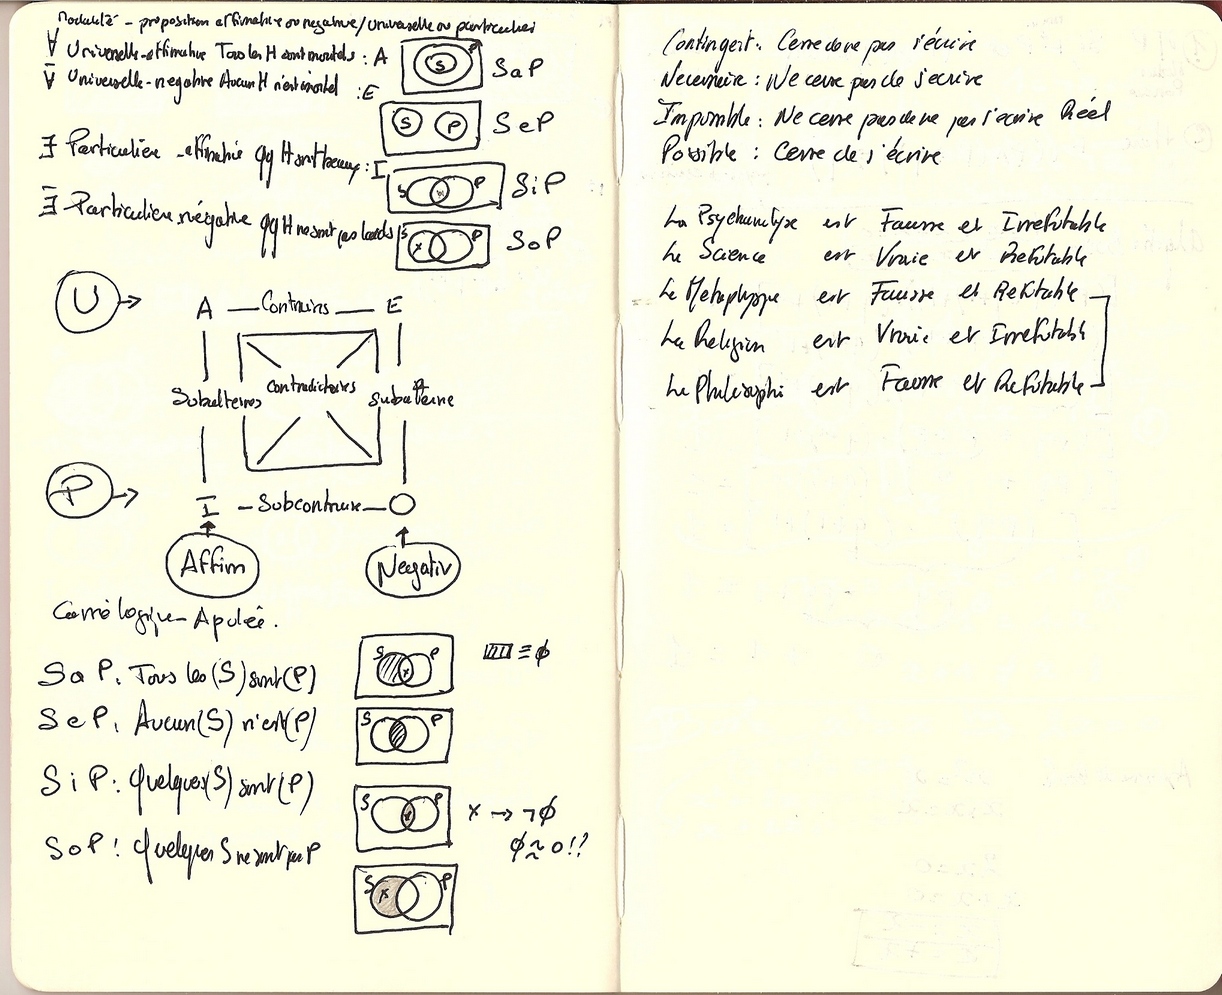 Modalité - proposition affirmative ou négative/universelle ou particulier
∀ Universelle-affirmative Tous les H sont mortels : A
S P SaP
∀ Universelle-négative Aucun H n'est mortel : E
S P SeP
∃ Particulière -affirmative qq H sont beaux : I
S P SiP
∃ Particulière négative qq H ne sont pas
S P SoP
U
A — Contraires — E
Subalternes Contradictoires Subalterne
P
I - Subcontraire - O
Affirm Negativ
Carré logique - Apulée.
SaP. Tous les (S) sont (P)
S P ≡ ϕ
SeP. Aucun (S) n'est (P)
S P
SiP: Quelques (S) sont (P)
S P x → ¬ϕ
ϕ ≈ 0!!
SoP! Quelques S ne sont pas P
S P
Contingent. Cesse de ne pas s'écrire
Necessaire : Ne cesse pas de s'écrire
Impossible : Ne cesse pas de ne pas s'écrire Réel
Possible : Cesse de s'écrire
La Psychanalyse est Fausse et Irrefutable
La Science est Vraie et Refutable
La Metaphysique est Fausse et Refutable
La Religion est Vraie et Irrefutable
La Philosophi est Fausse et Refutable